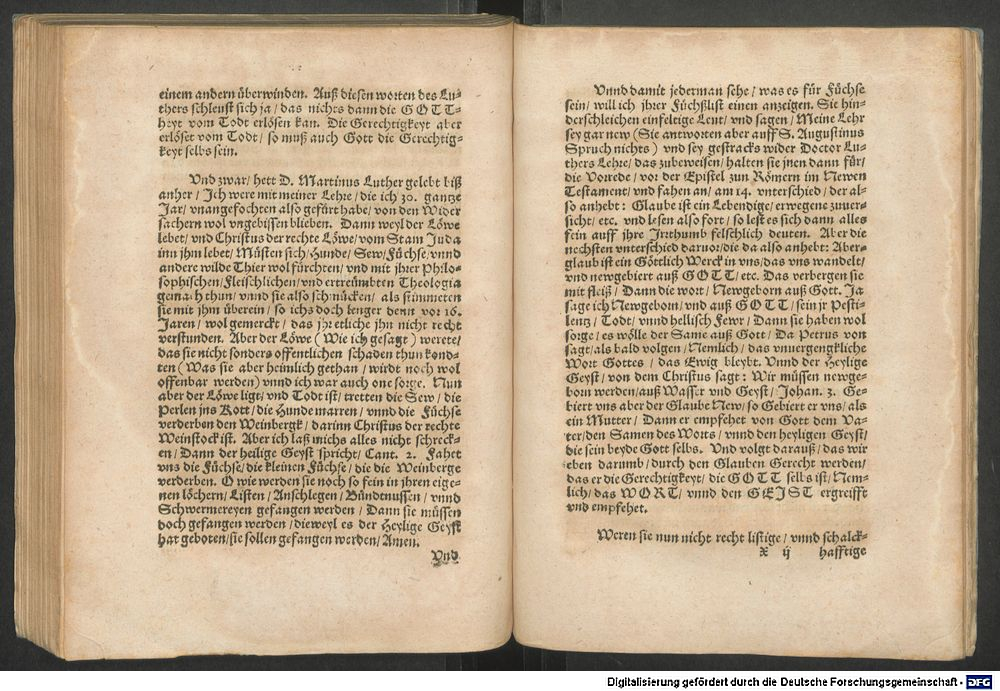 einem andern überwinden. Auß diesen worten des Lu-
thers schleust sich ja / das nichts dann die GOTT-
heyt vom Todt erlösen kan. Die Gerechtigkeyt aber
erlöset vom Todt / so muß auch Gott die Gerechtig-
keyt selbs sein.
Vnd zwar / hett D. Martinus Luther gelebt biß
anher / Ich were mit meiner Lehre / die ich 30. gantze
Jar / vnangefochten also gefürt habe / von den Wider
sachern wol vngebissen blieben. Dann weyl der Löwe
lebet / vnd Christus der rechte Löwe / vom Stam Juda
inn jhm lebet / Müsten sich / Hunde / Sew / Füchse / vnnd
andere wilde Thier wol fürchten / vnd mit jhrer Philo-
sophischen / Fleischlichen / vnd ertreümbten Theologia
gemach thun / vnnd sie also schmücken / als stimmeten
sie mit jhm überein / so ichs doch lenger denn vor 16.
Jaren / wol gemerckt / das jhr etliche jhn nicht recht
verstunden. Aber der Löwe ( Wie ich gesagt ) werete /
das sie nicht sonders offentlichen schaden thun kond-
ten ( Was sie aber heimlich gethan / würdt noch wol
offenbar werden ) vnnd ich war auch one sorge. Nun
aber der Löwe ligt / vnd Todt ist / tretten die Sew / die
Perlen jns Kott / die Hunde marren / vnnd die Füchse
verderben den Weinbergk / darinn Christus der rechte
Weinstock ist. Aber ich laß michs alles nicht schreck-
en / Dann der heilige Geyst spricht / Cant. 2. Fahet
vns die Füchse / die kleinen Füchse / die die Weinberge
verderben. O wie werden sie noch so fein in jhren eige-
nen löchern / Listen / Anschlegen / Bündtnussen / vnnd
Schwermereyen gefangen werden / Dann sie müssen
doch gefangen werden / dieweyl es der Heylige Geyst
hat geboten / sie sollen gefangen werden / Amen.
Vnd
Vnnd damit jederman sehe / was es für Füchse
sein / will ich jhrer Füchßlist einen anzeigen. Sie hin-
derschleichen einfeltige Leut / vnd sagen / Meine Lehr
sey gar new ( Sie antworten aber auff S. Augustinus
Spruch nichts ) vnd sey gestracks wider Doctor Lu-
thers Lehre / das zubeweisen / halten sie jnen dann für /
die Vorrede / vor der Epistel zun Römern im Newen
Testament / vnd fahen an / am 14. vnterschied / der al-
so anhebt : Glaube ist ein Lebendige / erwegene zuuer-
sicht / etc. vnd lesen also fort / so lest es sich dann alles
fein auff jhre Irthumb felschlich deuten. Aber die
nechsten vnterschied daruor / die da also anhebt : Aber-
glaub ist ein Göttlich Werck in vns / das vns wandelt /
vnd newgebiert auß GOTT / etc. Das verbergen sie
mit fleiß / Dann die wort / Newgeborn auß Gott. Ja
sage ich Newgeborn / vnd auß GOTT / sein jr Pesti-
lentz / Todt / vnnd hellisch Fewr / Dann sie haben wol
sorge / es wölle der Same auß Gott / Da Petrus von
sagt / als bald volgen / Nemlich / das vnuergengkliche
Wort Gottes / das Ewig bleybt. Vnnd der Heylige
Geyst / von dem Christus sagt : Wir müssen newge-
born werden / auß Wasser vnd Geyst / Johan. 3. Ge-
biert vns aber der Glaube New / so Gebiert er vns / als
ein Mutter / Dann er empfehet von Gott dem Va-
ter / den Samen des Worts / vnnd den heyligen Geyst /
die sein beyde Gott selbs. Vnd volgt darauß / das wir
eben darumb / durch den Glauben Gerecht werden /
das er die Gerechtigkeyt / die GOTT selbs ist / Nem-
lich / das WORT / vnnd den GEIST ergreifft
vnd empfehet.
Weren sie nun nicht recht listige / vnnd schalck-
x ij hafftige
Digitalisierung gefördert durch die Deutsche Forschungsgemeinschaft - DFG